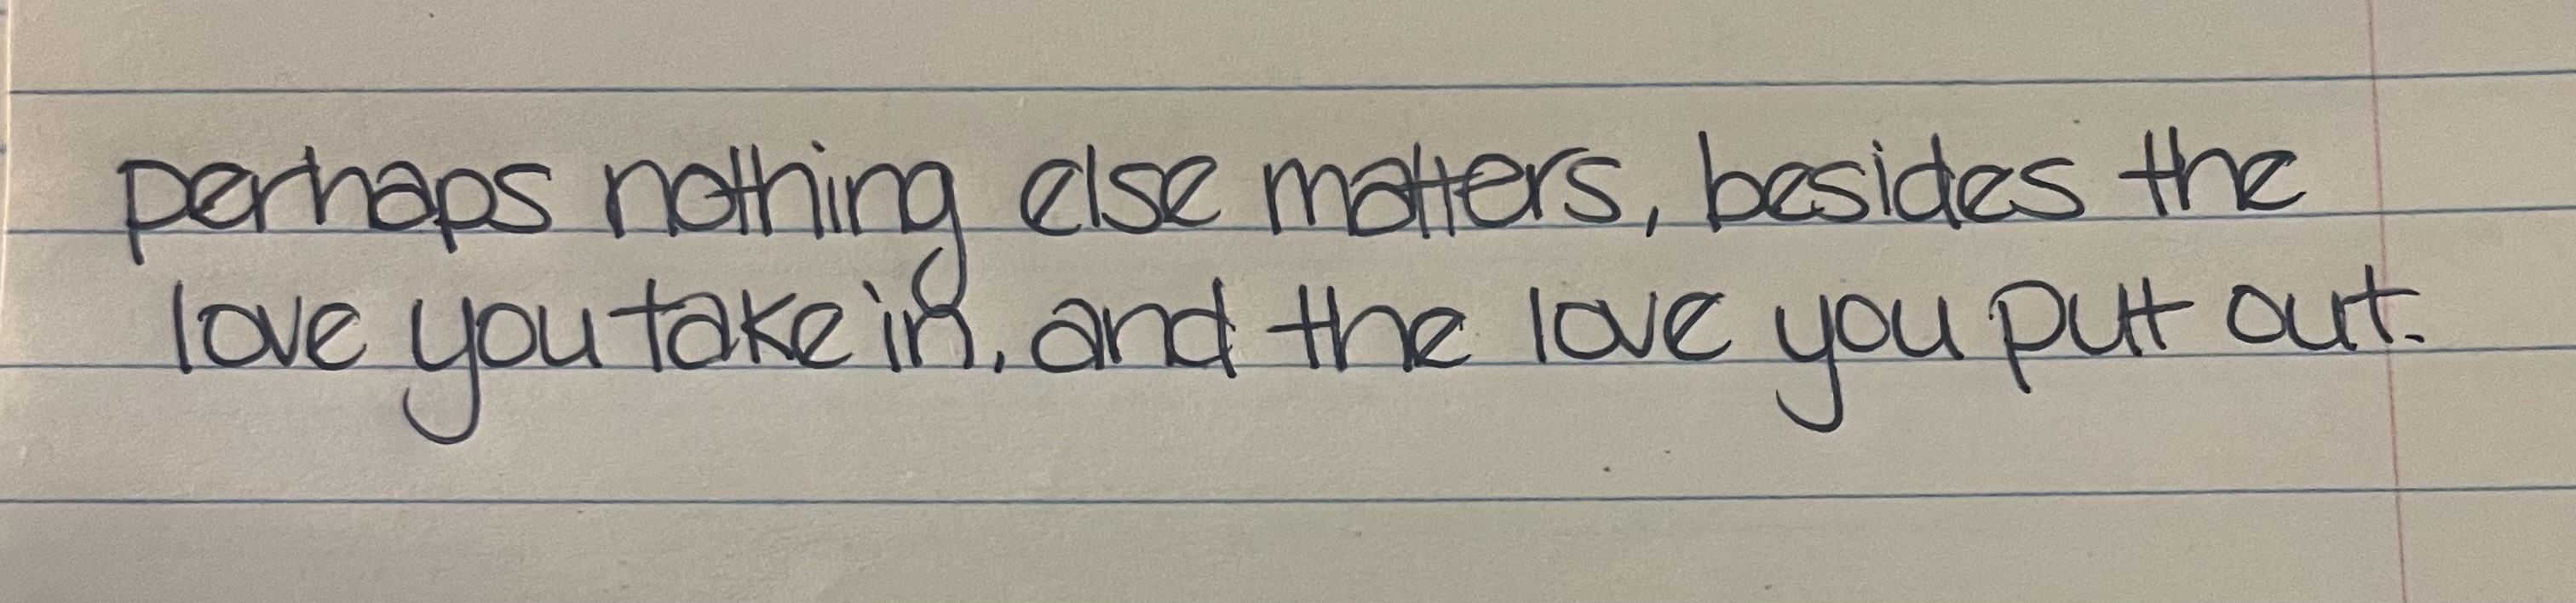 perhaps nothing else matters, besides the
love you take in, and the love you putt out.